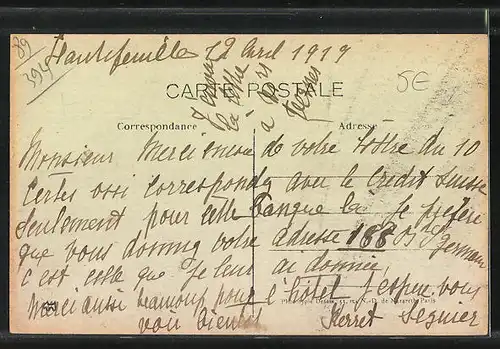 89
394
Hautefeuille 12 Avril 1919
5E
CARTE POSTALE
Correspondance
Adresse
Monsieur Merci encore de votre lettre du 10
Certes ossi correspondez avec le Credit Suisse
seulement pour cette Banque la je préfère
que vous donniez votre adresse 188 Bd St germain
c est celle que je leur ai donnée,
Merci aussi beaucoup pour l'hôtel J espère vous
voir bientot Pierret Segnier